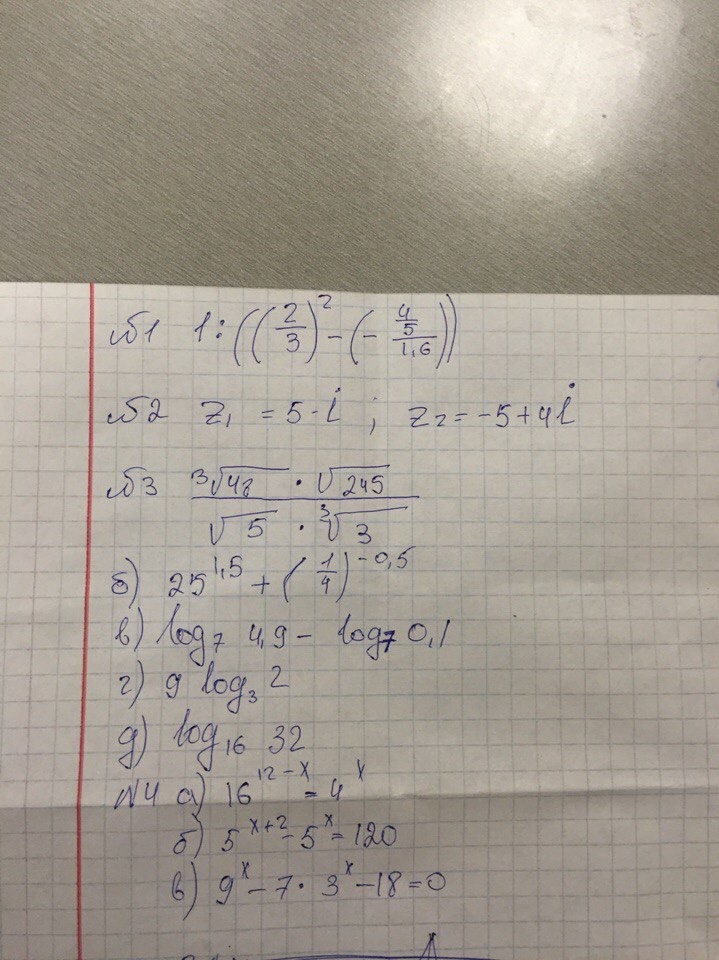 №1 1:((2/3)² - (- (4/5)/1,6))
№2 z₁ = 5 - i ; z₂ = -5 + 4i
№3 ∛48 · √245 / √5 · ∛3
б) 25^1,5 + (1/4)^-0,5
в) log₇ 4,9 - log₇ 0,1
г) 9 log₃ 2
д) log₁₆ 32
№4 а) 16^12-x = 4^x
б) 5^x+2 - 5^x = 120
в) 9^x - 7 · 3^x - 18 = 0